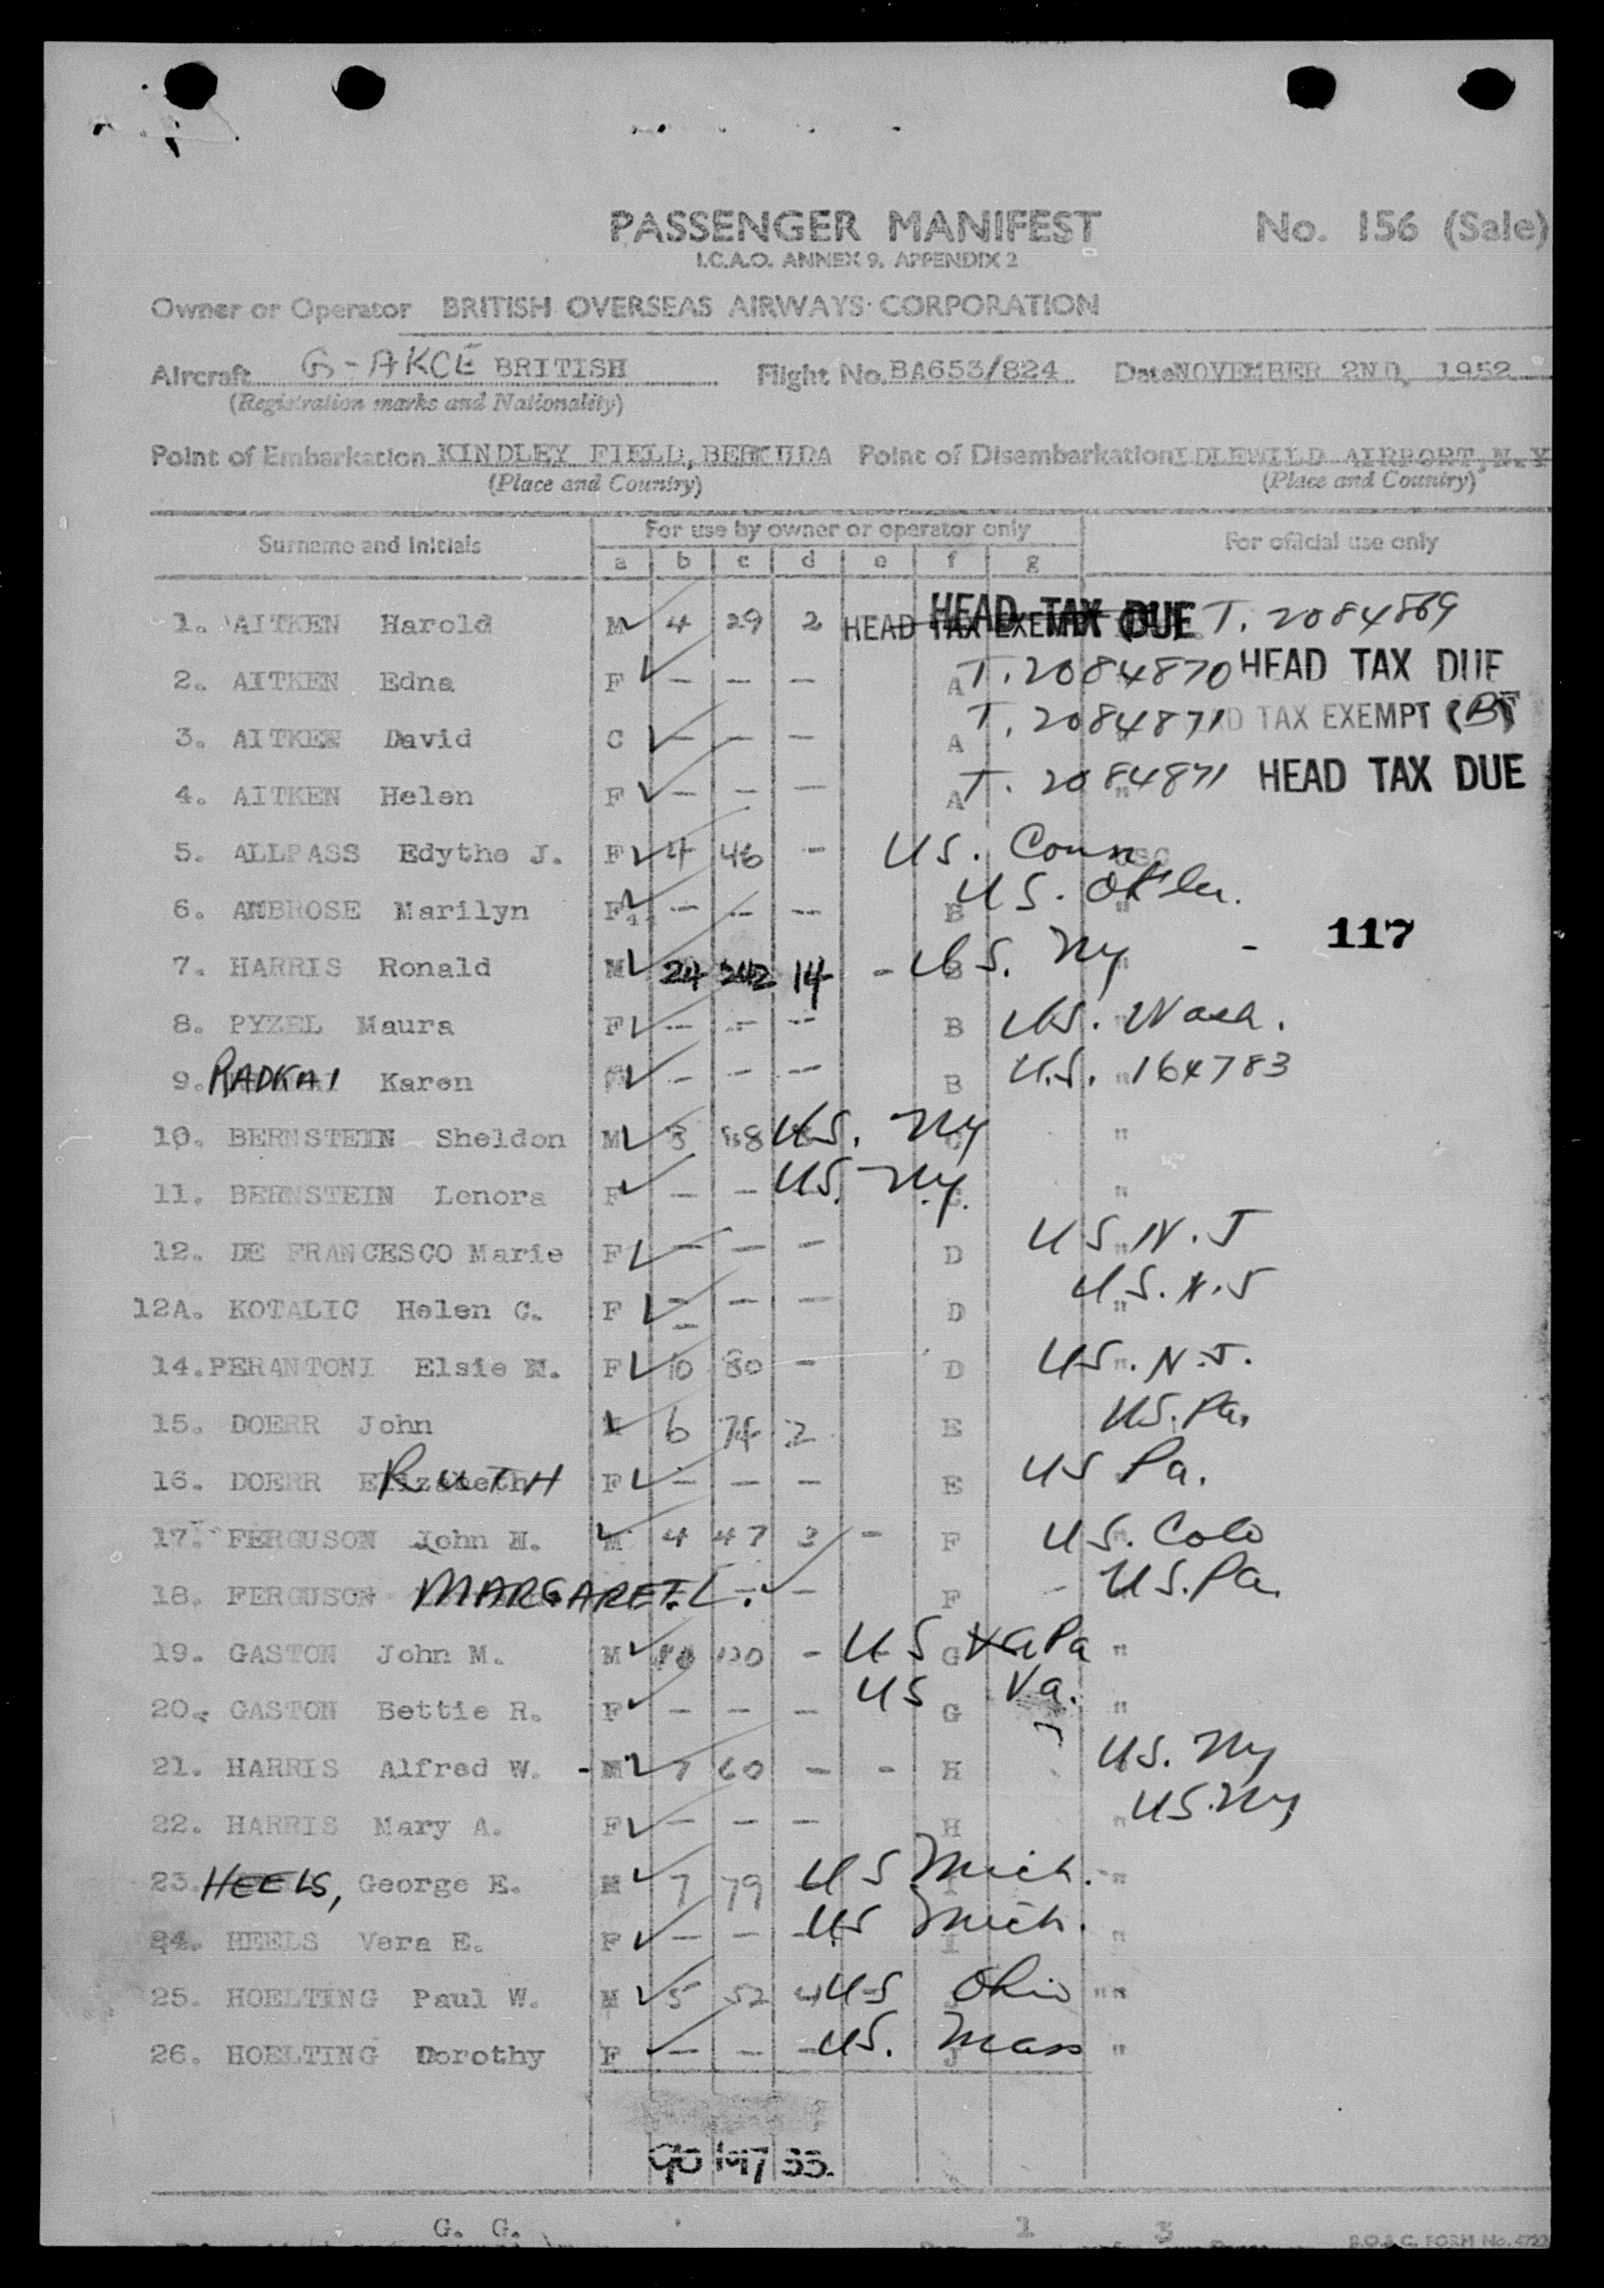 PASSENGER MANIFEST No. 156 (Sale)
I.C.A.O. ANNEX 9. APPENDIX 2
Owner or Operator BRITISH OVERSEAS AIRWAYS CORPORATION
Aircraft G-AKCE BRITISH Flight No. BA653/824 Date NOVEMBER 2ND, 1952
(Registration marks and Nationality)
Point of Embarkation KINDLEY FIELD, BERMUDA Point of Disembarkation IDLEWILD AIRPORT, N.Y
(Place and Country) (Place and Country)
Surname and Initials For use by owner or operator only For official use only
a b c d e f g
1. AITKEN Harold M 4 29 2 HEAD TAX EXEMPT HEAD TAX DUE T. 2084869
2. AITKEN Edna F — — — A T. 2084870 HEAD TAX DUE
3. AITKEN David C — — — A T. 2084871 TAX EXEMPT (B)
4. AITKEN Helen F — — — A T. 2084871 " HEAD TAX DUE
5. ALLPASS Edythe J. F 4 46 — US. Conn USC
6. AMBROSE Marilyn F — — — B US. Okla. "
7. HARRIS Ronald M 24 242 14 - B US. Ny " - 117
8. PYZEL Maura F — — — B US. Wash. "
9. RADKAI Karen — — — B U.S. " 164783
10. BERNSTEIN Sheldon M US. Ny "
11. BERNSTEIN Lenora F — — US. Ny. "
12. DE FRANCESCO Marie F — — — D US N.J "
12A. KOTALIC Helen C. F — — — D US. N.J "
14. PERANTONI Elsie M. F 10 80 — D US. N.J. "
15. DOERR John M 6 74 2 E US. Pa.
16. DOERR Elizabeth RUTH F — — — E US Pa.
17. FERGUSON John H. M 4 47 3 - F US. Colo "
18. FERGUSON MARGARET L. — — F - US. Pa.
19. GASTON John M. M — G US Va Pa "
20. GASTON Bettie R. F — — — G US Va. "
21. HARRIS Alfred W. - M 7 60 — - H US. Ny
22. HARRIS Mary A. F — — — H " US. Ny
23. HEELS, George E. M 7 79 US Mich. "
24. HEELS Vera E. F — — — I US Mich. "
25. HOELTING Paul W. M 5 52 4 US Ohio "
26. HOELTING Dorothy F — — — J US. Mass "
G. G. 1 3 FORM No.